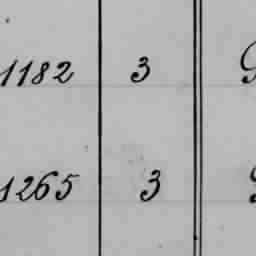 1182 3
1265 3